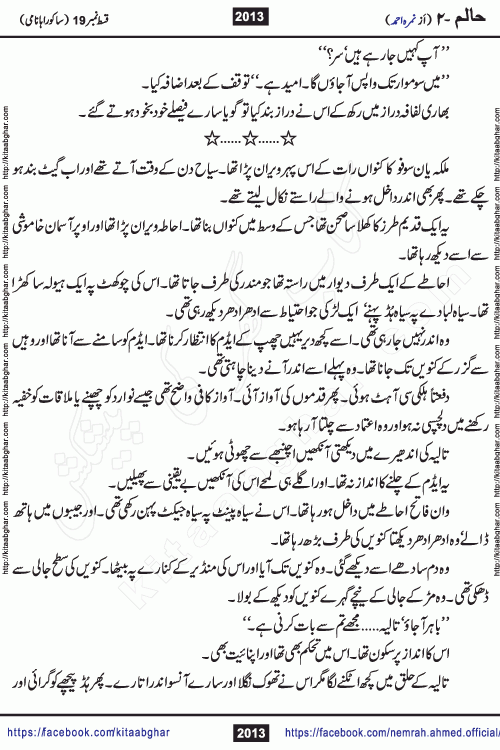 حالم -۲ (از نمرہ احمد)
2013
قسط نمبر 19 (ساکورا ہانامی)
’’آپ کہیں جا رہے ہیں‘ سر؟‘‘
’’میں سوموار تک واپس آجاؤں گا۔ امید ہے۔‘‘ توقف کے بعد اضافہ کیا۔
بھاری لفافہ دراز میں رکھ کے اس نے دراز بند کیا تو گویا سارے فیصلے خود بخود ہوتے گئے۔
☆......☆......☆
ملکہ یان سوفو کا کنواں رات کے اس پہر ویران پڑا تھا۔ سیاح دن کے وقت آتے تھے اور اب گیٹ بند ہو
چکے تھے۔ پھر بھی اندر داخل ہونے والے راستے نکال لیتے تھے۔
یہ ایک قدیم طرز کا کھلا سا صحن تھا جس کے وسط میں کنواں بنا تھا۔ احاطہ ویران پڑا تھا اور اوپر آسمان خاموشی
سے اسے دیکھ رہا تھا۔
احاطے کے ایک طرف دیوار میں راستہ تھا جو مندر کی طرف جاتا تھا۔ اس کی چوکھٹ پہ ایک ہیولہ سا کھڑا
تھا۔ سیاہ لبادے پہ سیاہ ہڈ پہنے ایک لڑکی جو احتیاط سے ادھر ادھر دیکھ رہی تھی۔
وہ اندر نہیں جا رہی تھی۔ اسے کچھ دیر یہیں چھپ کے ایڈم کا انتظار کرنا تھا۔ ایڈم کو سامنے سے آنا تھا اور وہیں
سے گزر کے کنویں تک جانا تھا۔ وہ پہلے اسے اندر آنے دینا چاہتی تھی۔
دفعتاً ہلکی سی آہٹ ہوئی۔ پھر قدموں کی آواز آئی۔ آواز کافی واضح تھی جیسے نو وارد کو چھپنے یا ملاقات کو خفیہ
رکھنے میں دلچسپی نہ ہو اور وہ اعتماد سے چلتا آ رہا ہو۔
تالیہ کی اندھیرے میں دیکھتی آنکھیں اچنبھے سے چھوٹی ہوئیں۔
یہ ایڈم کے چلنے کا انداز نہ تھا۔ اور اگلے ہی لمحے اس کی آنکھیں بے یقینی سے پھیلیں۔
وان فاتح احاطے میں داخل ہو رہا تھا۔ اس نے سیاہ پینٹ پہ سیاہ جیکٹ پہن رکھی تھی۔ اور جیبوں میں ہاتھ
ڈالے‘ وہ ادھر ادھر دیکھتا کنویں کی طرف بڑھ رہا تھا۔
وہ دم سادھے اسے دیکھے گئی۔ وہ کنویں تک آیا اور اس کی منڈیر کے کنارے پہ بیٹھا۔ کنویں کی سطح جالی سے
ڈھکی تھی۔ وہ مڑ کے جالی کے نیچے گہرے کنویں کو دیکھ کے بولا۔
’’باہر آجاؤ‘ تالیہ...... مجھے تم سے بات کرنی ہے۔‘‘
اس کا انداز پرسکون تھا۔ اس میں تحکم بھی تھا اور اپنائیت بھی۔
تالیہ کے حلق میں کچھ اٹکنے لگا مگر اس نے تھوک نگلا اور سارے آنسو اندر اتارے۔ پھر ہڈ پیچھے کو گرائی اور
https://facebook.com/kitaabghar
2013
https://www.facebook.com/nemrah.ahmed.official/
http://kitaabghar.com http://kitaabghar.com http://kitaabghar.com http://kitaabghar.com
http://kitaabghar.com http://kitaabghar.com http://kitaabghar.com http://kitaabghar.com